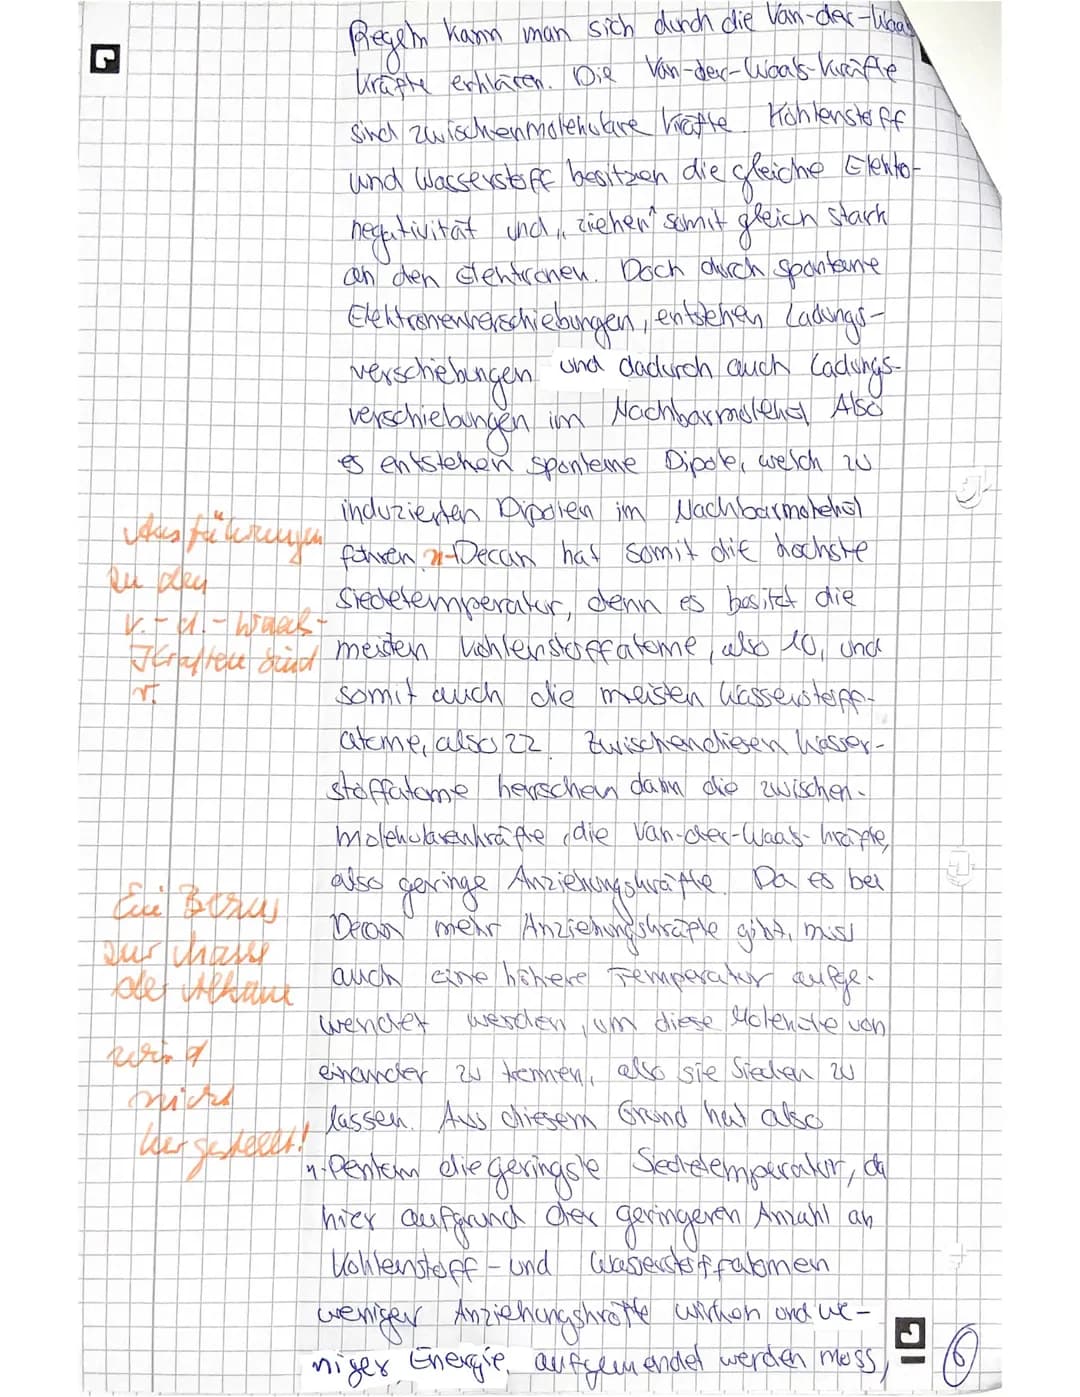 Regeln kann man sich durch die Van-der-Waals
kräfte erklären. Die Van-der-Waals-kräfte
sind zwischenmolekulare kräfte. Kohlenstoff
und Wasserstoff besitzen die gleiche Elekto-
negativität und „ziehen" somit gleich stark
an den Elektronen. Doch durch spontane
Elektronenverschiebungen, entstehen Ladungs-
verschiebungen und dadurch auch Ladungs-
verschiebungen im Nachbarmolekül Also
es entstehen spontane Dipole, welch zu
induzierten Dipolen im Nachbarmolekül
führen. n-Decan hat somit die höchste
Siedetemperatur, denn es besitzt die
meisten Kohlenstoffatome, also 10, und
somit auch die meisten Wasserstoff-
atome, also 22. Zwischen diesen Wasser-
stoffatome herrschen dann die zwischen-
molekularenkräfte, die Van-der-Waals-kräfte,
also geringe Anziehungskräfte. Da es bei
Decan mehr Anziehungskräfte gibt, muss
auch eine höhere Temperatur aufge-
wendet werden, um diese Moleküle von
einander zu trennen, also sie Sieden zu
lassen. Aus diesem Grund hat also
n-Pentan die geringste Siedetemperatur, da
hier aufgrund der geringeren Anzahl an
Kohlenstoff- und Wasserstoffatomen
weniger Anziehungskräfte wirken und we-
niger Energie aufgewendet werden muss,
Ausführungen
zu den
v.-d.-Waals-
Kräften sind
r.
Ein Bezug
zur Masse
der Alkane
wird
nicht
hergestellt!
6